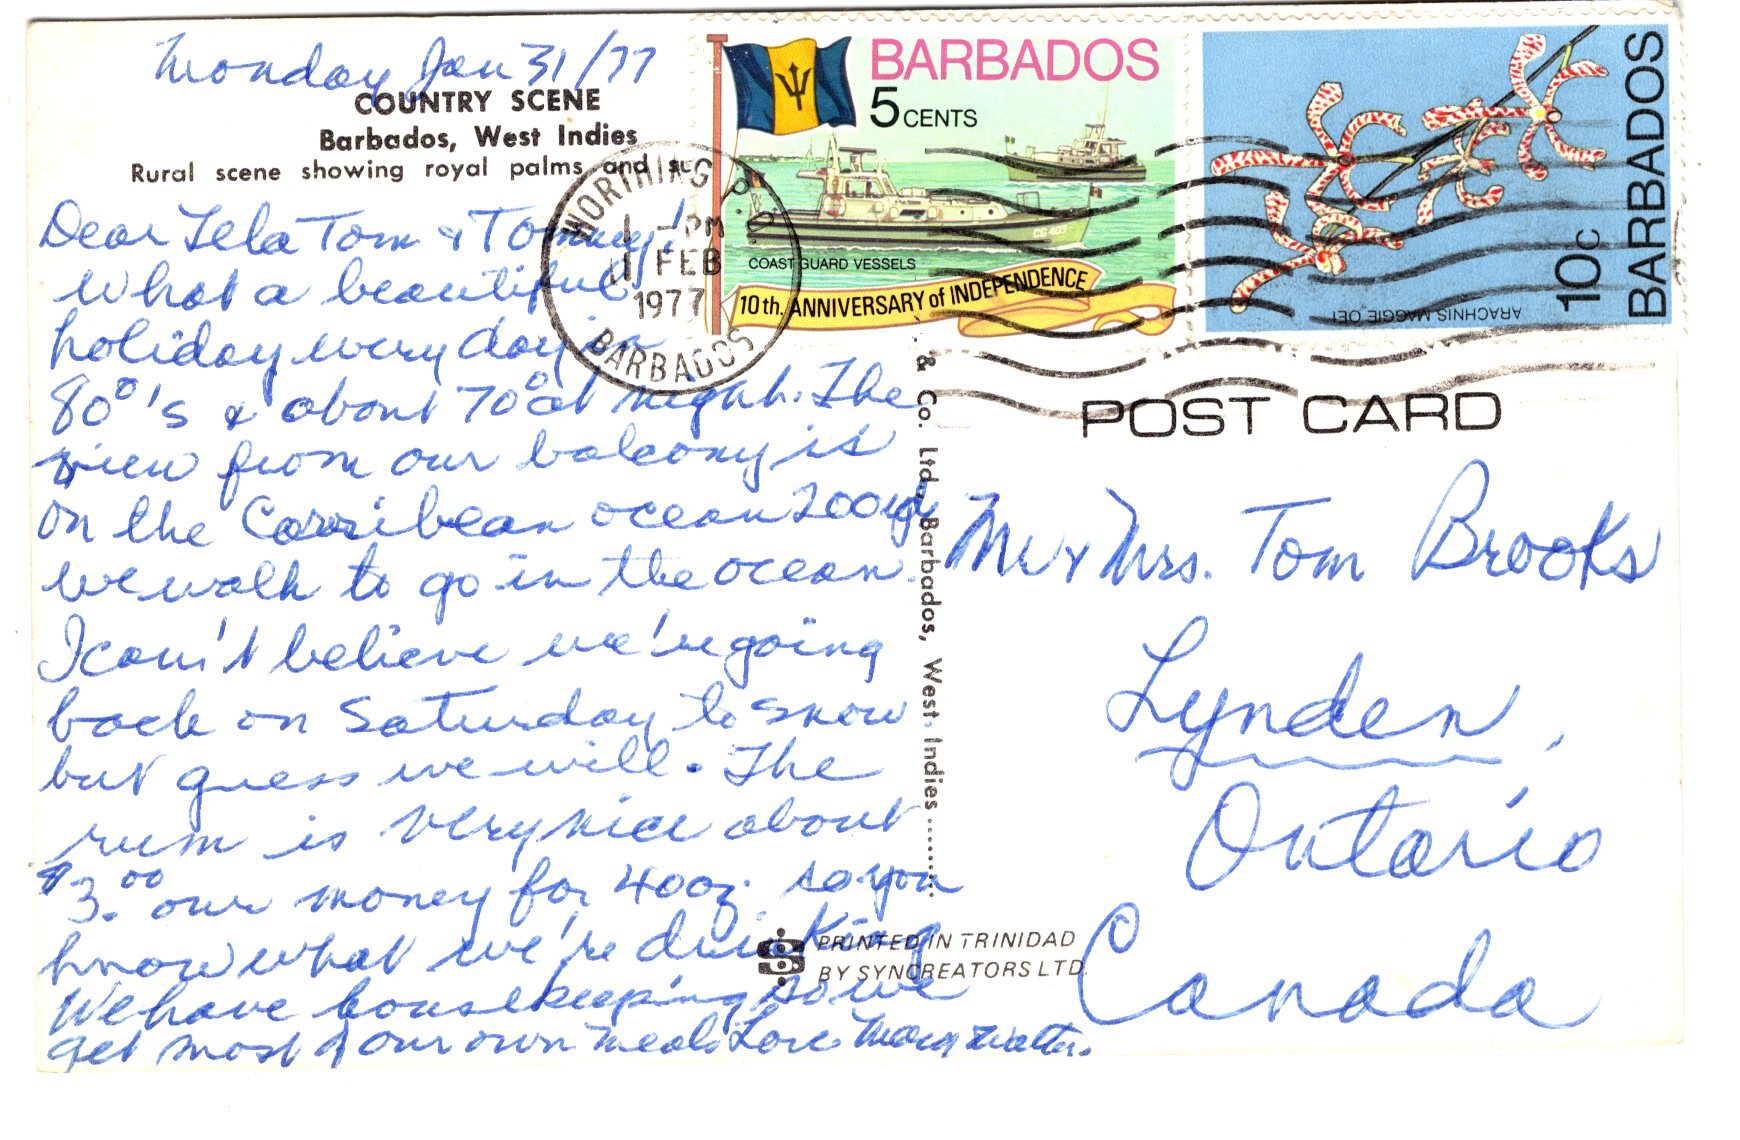 Monday Jan 31/77
COUNTRY SCENE
Barbados, West Indies
Rural scene showing royal palms and
Dear Lela Tom & Tommy,
What a beautiful
holiday every day in
80°'s & about 70° at night. The
view from our balcony is
on the Carribean ocean 200 yds
we walk to go in the ocean.
I can't believe we're going
back on Saturday to snow
but guess we will. The
rum is very nice about
$3.00 our money for 40 oz. so you
know what we're drinking
We have housekeeping so we
get most of our own meals Love Marg Walter.
BARBADOS
5 CENTS
CG 403
COAST GUARD VESSELS
10th. ANNIVERSARY of INDEPENDENCE
BARBADOS
10c
ARACHNIS MAGGIE OEI
WORTHING P.O.
1 - PM
1 FEB
1977
BARBADOS
& Co. Ltd., Barbados, West Indies
POST CARD
Mr & Mrs. Tom Brooks
Lynden,
Ontario
Canada
PRINTED IN TRINIDAD
BY SYNCREATORS LTD.